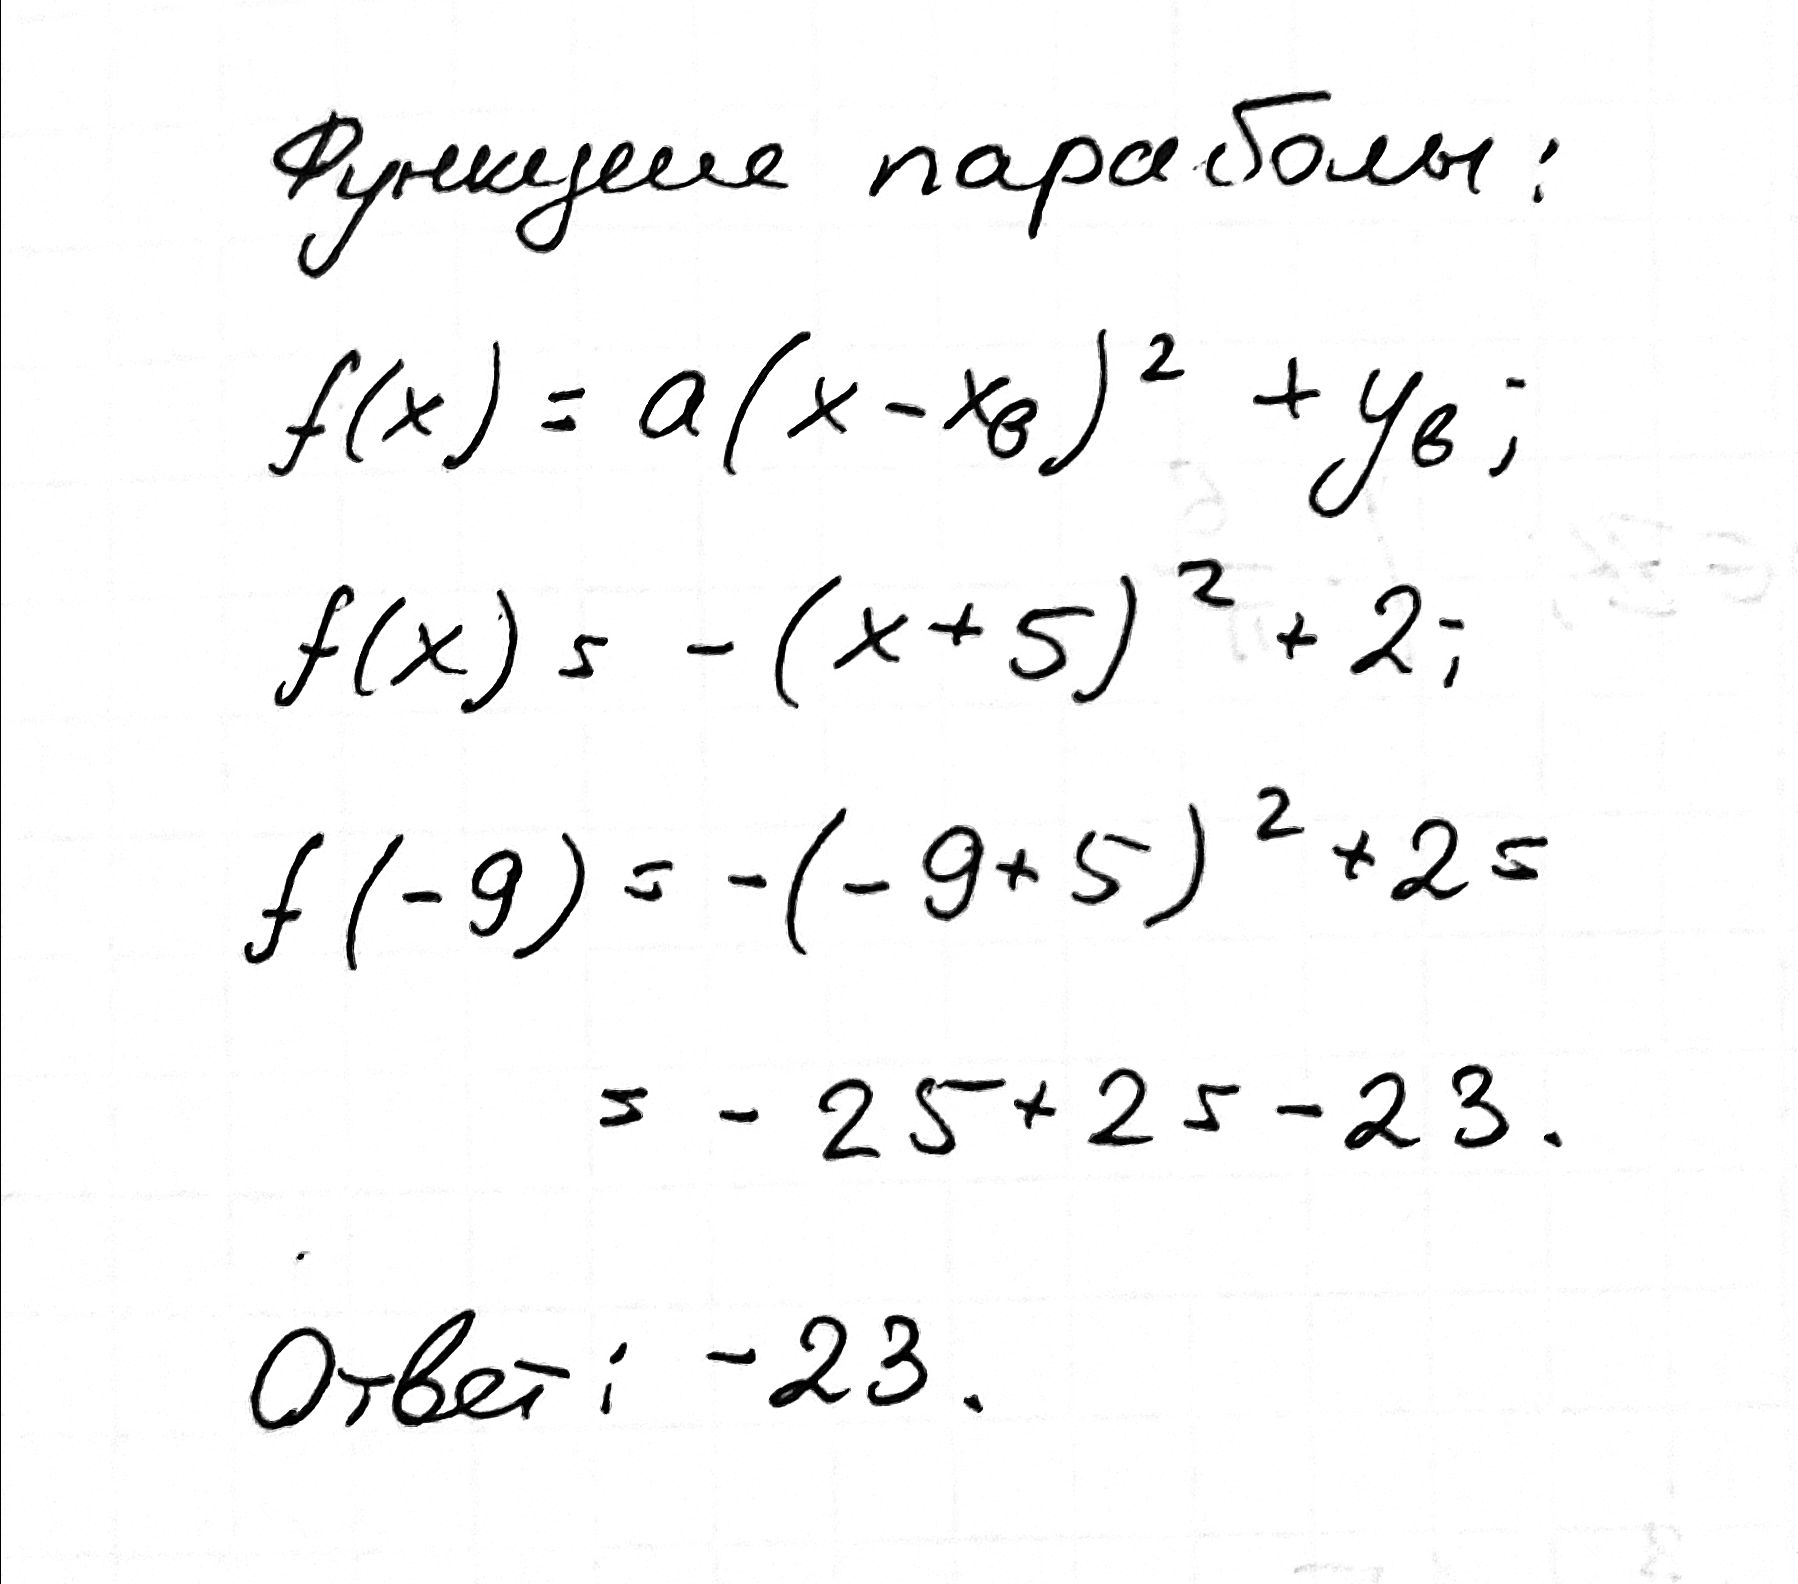 Функция параболы:
f(x) = a(x - xв)² + yв;
f(x) = - (x + 5)² + 2;
f(-9) = -(-9+5)² + 2 =
= - 25 + 2 = - 23.
Ответ: -23.